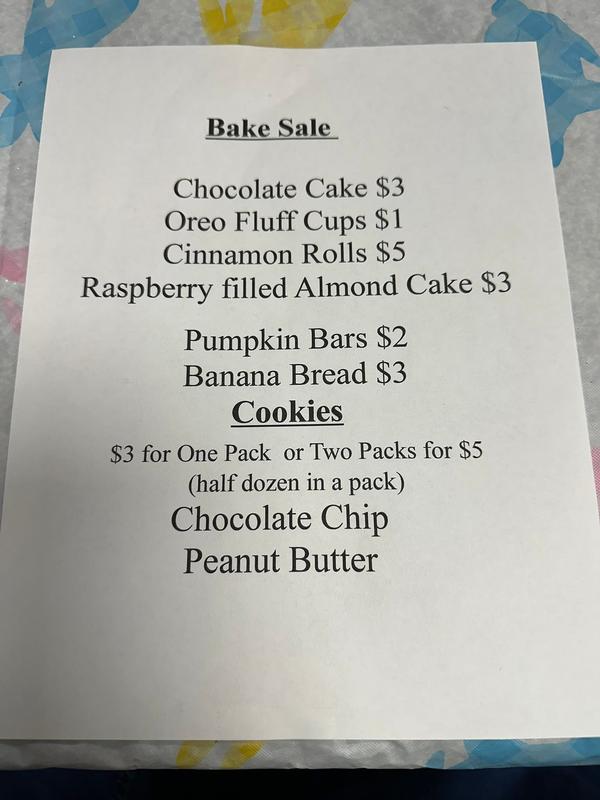 Bake Sale
Chocolate Cake $3
Oreo Fluff Cups $1
Cinnamon Rolls $5
Raspberry filled Almond Cake $3
Pumpkin Bars $2
Banana Bread $3
Cookies
$3 for One Pack or Two Packs for $5
(half dozen in a pack)
Chocolate Chip
Peanut Butter